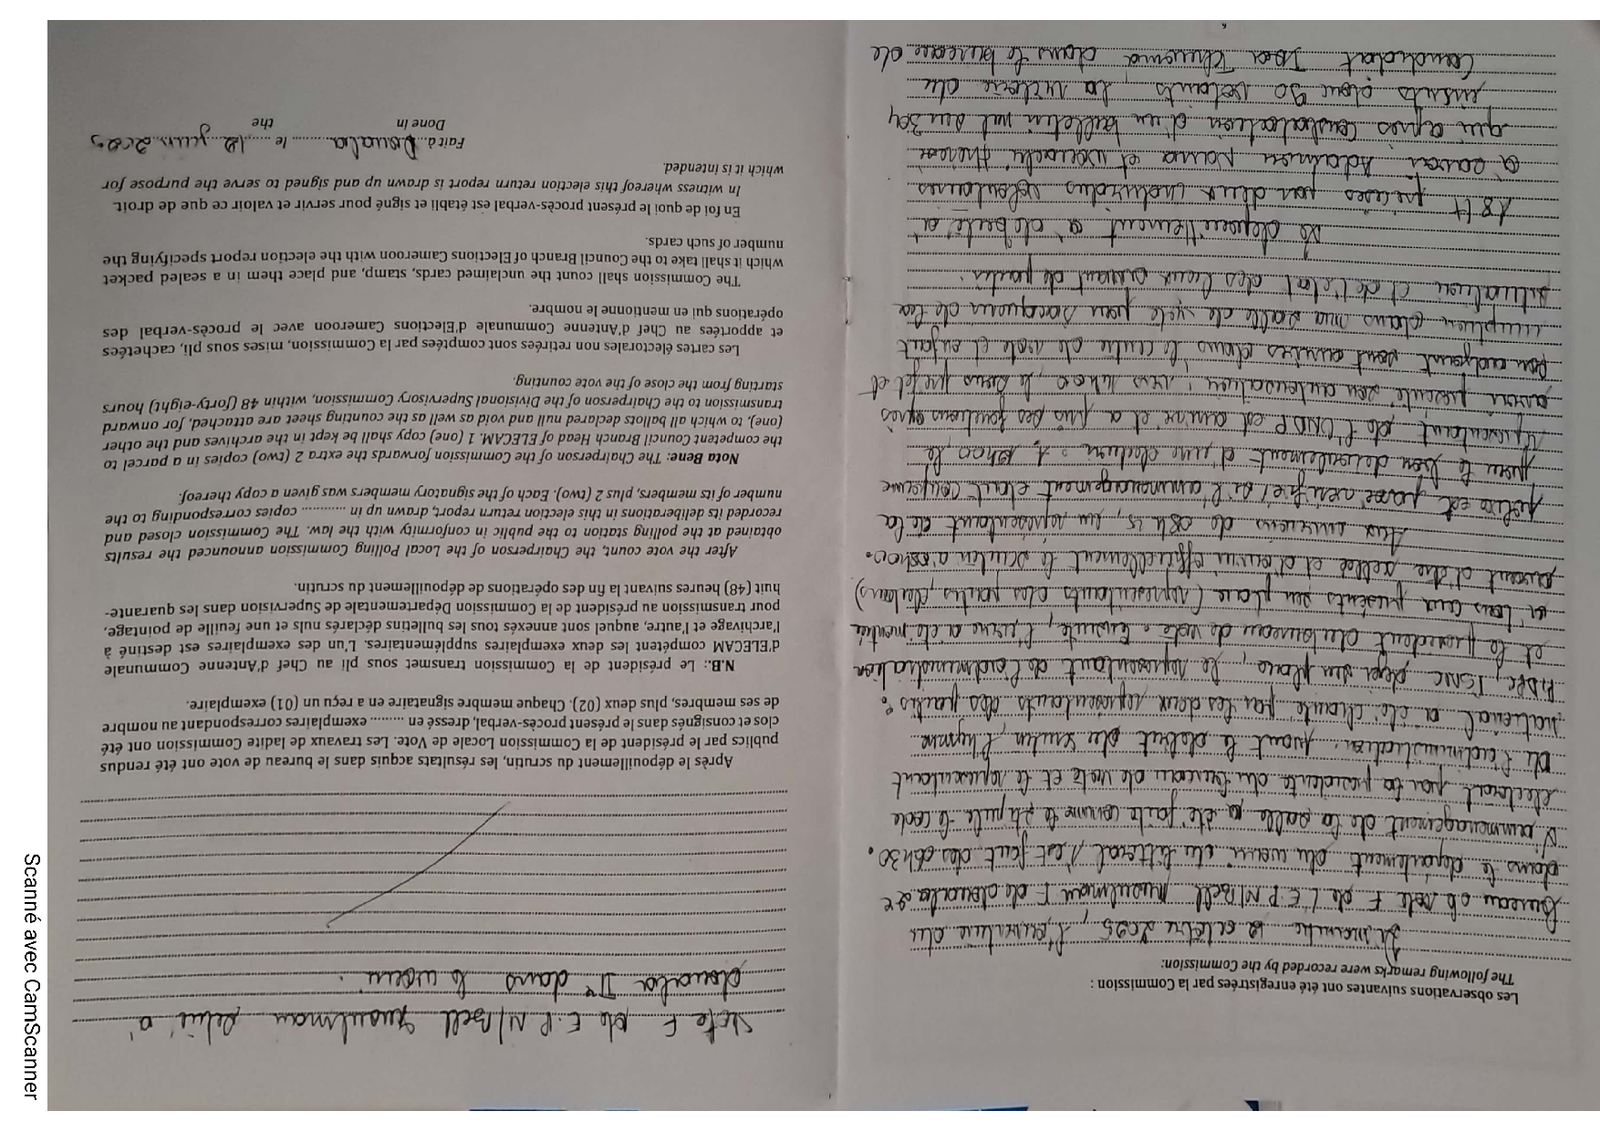 Les observations suivantes ont été enregistrées par la Commission :
The following remarks were recorded by the Commission:
Dimanche 12 octobre 2025, l'ouverture du
Bureau de vote F de l'E.P N/Bell Musulman F de douala 2e
dans le département du wouri du littoral s'est fait dès 06h30.
L'ammenagement de la salle a été faite comme le stipule le code
électoral par la présidente du bureau de vote et le représentant
de l'administration. Avant le début du scrutin, l'hymne
national a été chanté par les deux représentants des partis :
RDPC, FSNC deja sur place, le representant de l'administration
et le president du bureau de vote. Ensuite, l'urne a été montrée
à tous ceux présents sur place (représentants des partis, électeurs)
avant d'être scellée et d'ouvrir officiellement le scrutin à 08h00.
Aux environs de 08h15, un représentant de la
police est passé vérifier si l'ammenagement était conforme
pour le bon deroulement d'une election. A 10h00 le
représentant de l'UNDP est arrivé et a pris ses fonctions après
avoir présenté son autorisation. vers 14h00, le sous préfet et
son adjoint sont arrivés dans le centre de vote et on fait
irruption dans ma salle de vote pour s'acquerir de la
situation et de l'état des lieux avant de partir.
Le depouillement a débuté à
18H précises par deux individus volontaires
à savoir Adamou
qui après constatation d'un bulletin nul sur 304
votants, la victoire du
Candidat Issa Tchiroma dans le bureau de
vote F de E.P N/Bell Musulman situé à
douala IIe dans le wouri.
Après le dépouillement du scrutin, les résultats acquis dans le bureau de vote ont été rendus
publics par le président de la Commission Locale de Vote. Les travaux de ladite Commission ont été
clos et consignés dans le présent procès-verbal, dressé en ......... exemplaires correspondant au nombre
de ses membres, plus deux (02). Chaque membre signataire en a reçu un (01) exemplaire.
N.B.: Le président de la Commission transmet sous pli au Chef d'Antenne Communale
d'ELECAM compétent les deux exemplaires supplémentaires. L'un des exemplaires est destiné à
l'archivage et l'autre, auquel sont annexés tous les bulletins déclarés nuls et une feuille de pointage,
pour transmission au président de la Commission Départementale de Supervision dans les quarante-
huit (48) heures suivant la fin des opérations de dépouillement du scrutin.
After the vote count, the Chairperson of the Local Polling Commission announced the results
obtained at the polling station to the public in conformity with the law. The Commission closed and
recorded its deliberations in this election return report, drawn up in ........... copies corresponding to the
number of its members, plus 2 (two). Each of the signatory members was given a copy thereof.
Nota Bene: The Chairperson of the Commission forwards the extra 2 (two) copies in a parcel to
the competent Council Branch Head of ELECAM. 1 (one) copy shall be kept in the archives and the other
(one), to which all ballots declared null and void as well as the counting sheet are attached, for onward
transmission to the Chairperson of the Divisional Supervisory Commission, within 48 (forty-eight) hours
starting from the close of the vote counting.
Les cartes électorales non retirées sont comptées par la Commission, mises sous pli, cachetées
et apportées au Chef d'Antenne Communale d'Elections Cameroon avec le procès-verbal des
opérations qui en mentionne le nombre.
The Commission shall count the unclaimed cards, stamp, and place them in a sealed packet
which it shall take to the Council Branch of Elections Cameroon with the election report specifying the
number of such cards.
En foi de quoi le présent procès-verbal est établi et signé pour servir et valoir ce que de droit.
In witness whereof this election return report is drawn up and signed to serve the purpose for
which it is intended.
Fait à Douala le 12
Done in the
Scanné avec CamScanner